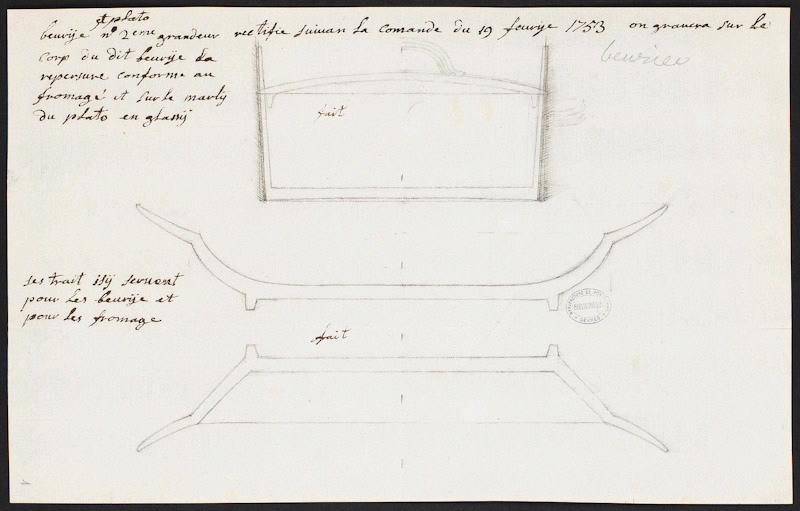 et plato
beurije n° 2eme grandeur rectifie suivan la comande du 19 feurije 1753 on gravera sur le
corp du dit beurije la
repersure conforme au
fromagé et sur le marly
du plato en glassij
beurier
fait
ses trait isij servent
pour les beurije et
pour les fromage
fait
MANUFACTURE DE
SEVRES